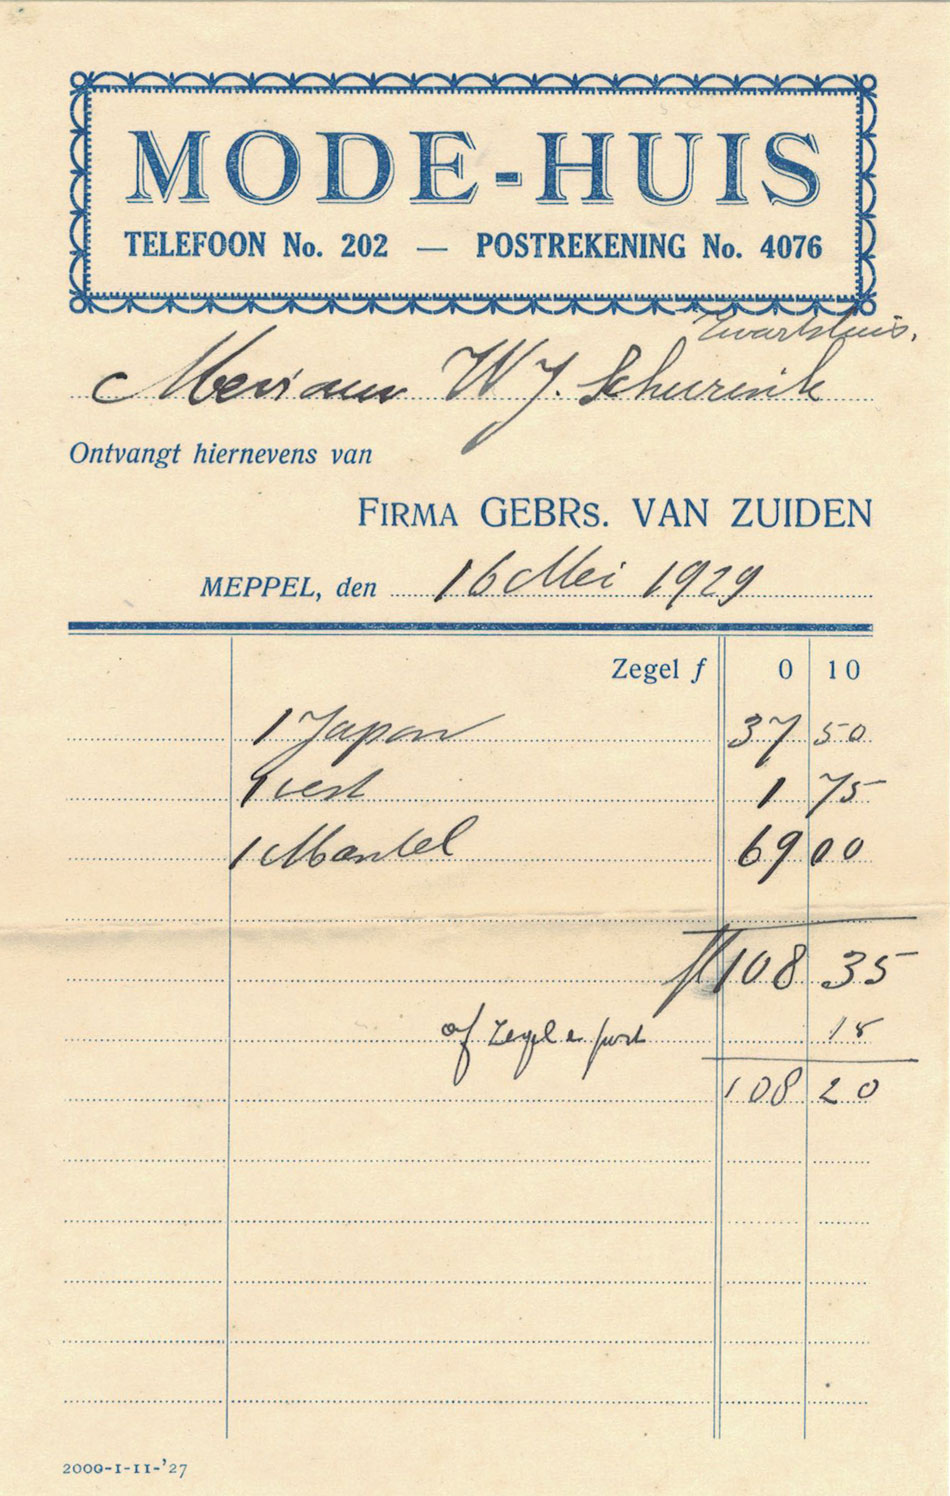 MODE-HUIS
TELEFOON No. 202 — POSTREKENING No. 4076
Zwartsluis.
Mevrouw W J. Schurink
Ontvangt hiernevens van
FIRMA GEBRs. VAN ZUIDEN
MEPPEL, den 16 Mei 1929
Zegel f 0 10
1 Japon 37 50
1 vest 1 75
1 Mantel 69 00
fl 108 35
af zegel e port 15
108 20
2000-I-II-'27